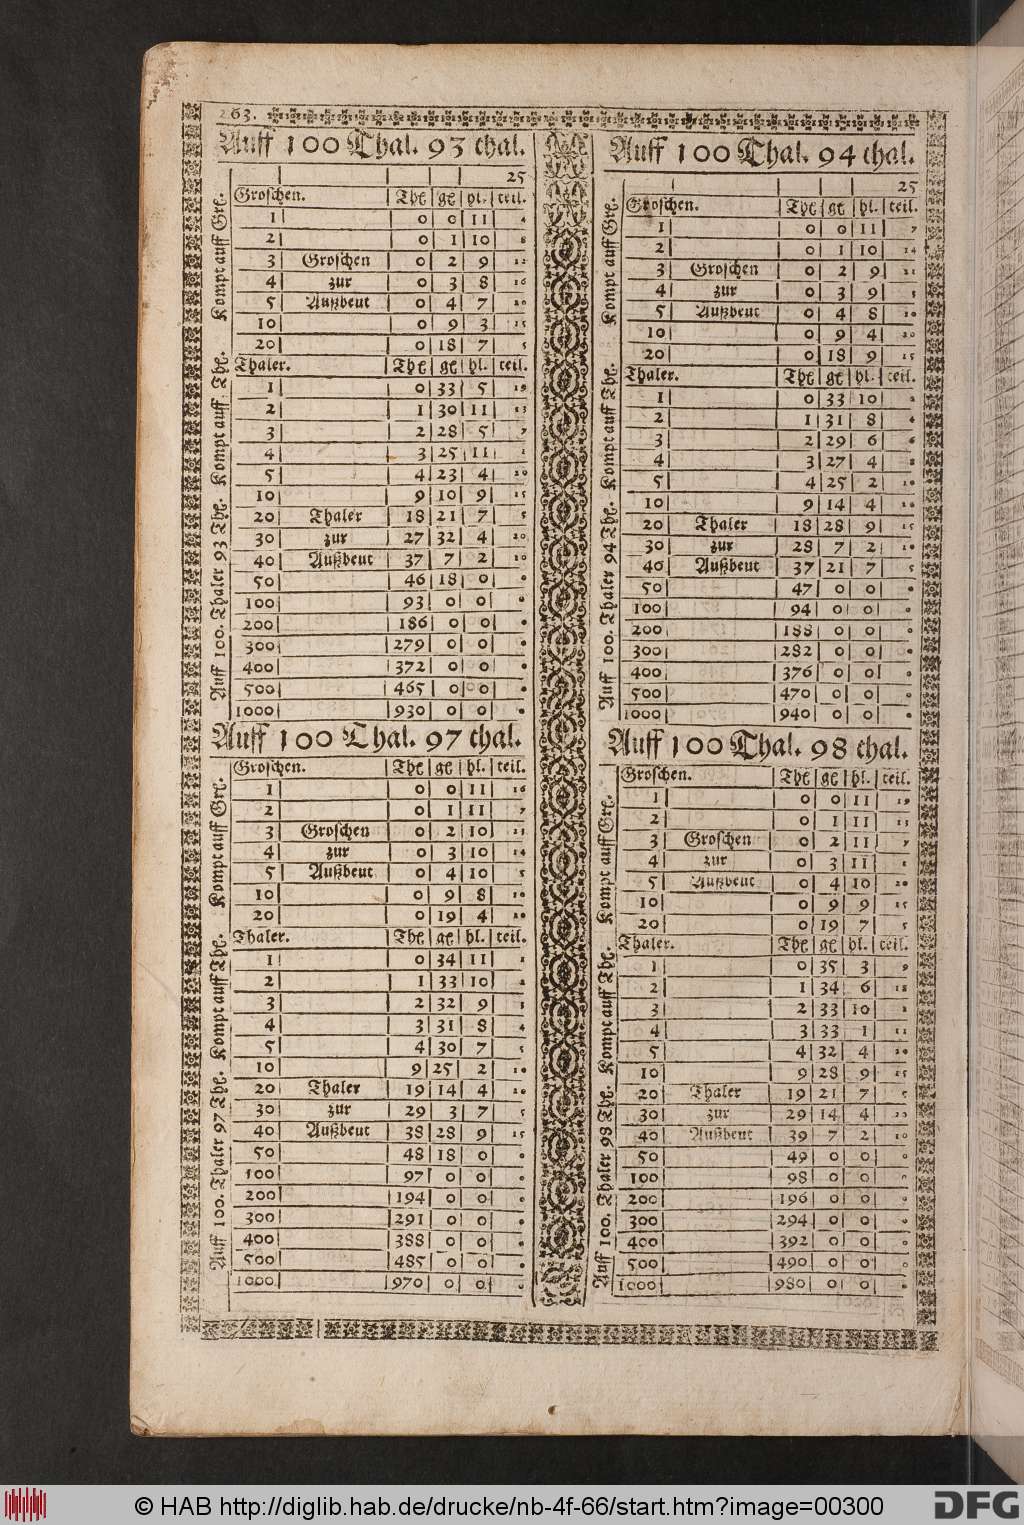 263.
Auff 100 Thal. 93 thal.
25
Groschen. | Thl | gl | hl. | teil.
1 | 0 | 0 | 11 | 4
2 | 0 | 1 | 10 | 8
3 | Groschen | 0 | 2 | 9 | 12
4 | zur | 0 | 3 | 8 | 16
5 | Außbeut | 0 | 4 | 7 | 20
10 | 0 | 9 | 3 | 15
20 | 0 | 18 | 7 | 5
Thaler. | Thl | gl | hl. | teil.
1 | 0 | 33 | 5 | 19
2 | 1 | 30 | 11 | 13
3 | 2 | 28 | 5 | 7
4 | 3 | 25 | 11 | 1
5 | 4 | 23 | 4 | 20
10 | 9 | 10 | 9 | 15
20 | Thaler | 18 | 21 | 7 | 5
30 | zur | 27 | 32 | 4 | 20
40 | Außbeut | 37 | 7 | 2 | 10
50 | 46 | 18 | 0 | 0
100 | 93 | 0 | 0 | 0
200 | 186 | 0 | 0 | 0
300 | 279 | 0 | 0 | 0
400 | 372 | 0 | 0 | 0
500 | 465 | 0 | 0 | 0
1000 | 930 | 0 | 0 | 0
Auff 100. Thaler 93 Thl. Kompt auff Thl. Kompt auff Gre.
Auff 100 Thal. 94 thal.
25
Groschen. | Thl | gl | hl. | teil.
1 | 0 | 0 | 11 | 7
2 | 0 | 1 | 10 | 14
3 | Groschen | 0 | 2 | 9 | 21
4 | zur | 0 | 3 | 9 | 3
5 | Außbeut | 0 | 4 | 8 | 10
10 | 0 | 9 | 4 | 20
20 | 0 | 18 | 9 | 15
Thaler. | Thl | gl | hl. | teil.
1 | 0 | 33 | 10 | 2
2 | 1 | 31 | 8 | 4
3 | 2 | 29 | 6 | 6
4 | 3 | 27 | 4 | 8
5 | 4 | 25 | 2 | 10
10 | 9 | 14 | 4 | 20
20 | Thaler | 18 | 28 | 9 | 15
30 | zur | 28 | 7 | 2 | 10
40 | Außbeut | 37 | 21 | 7 | 5
50 | 47 | 0 | 0 | 0
100 | 94 | 0 | 0 | 0
200 | 188 | 0 | 0 | 0
300 | 282 | 0 | 0 | 0
400 | 376 | 0 | 0 | 0
500 | 470 | 0 | 0 | 0
1000 | 940 | 0 | 0 | 0
Auff 100. Thaler 94 Thl. Kompt auff Thl. Kompt auff Gre.
Auff 100 Thal. 97 thal.
Groschen. | Thl | gl | hl. | teil.
1 | 0 | 0 | 11 | 16
2 | 0 | 1 | 11 | 7
3 | Groschen | 0 | 2 | 10 | 23
4 | zur | 0 | 3 | 10 | 14
5 | Außbeut | 0 | 4 | 10 | 5
10 | 0 | 9 | 8 | 10
20 | 0 | 19 | 4 | 20
Thaler. | Thl | gl | hl. | teil.
1 | 0 | 34 | 11 | 1
2 | 1 | 33 | 10 | 2
3 | 2 | 32 | 9 | 3
4 | 3 | 31 | 8 | 4
5 | 4 | 30 | 7 | 5
10 | 9 | 25 | 2 | 10
20 | Thaler | 19 | 14 | 4 | 20
30 | zur | 29 | 3 | 7 | 5
40 | Außbeut | 38 | 28 | 9 | 15
50 | 48 | 18 | 0 | 0
100 | 97 | 0 | 0 | 0
200 | 194 | 0 | 0 | 0
300 | 291 | 0 | 0 | 0
400 | 388 | 0 | 0 | 0
500 | 485 | 0 | 0 | 0
1000 | 970 | 0 | 0 | 0
Auff 100. Thaler 97 Thl. Kompt auff Thl. Kompt auff Gre.
Auff 100 Thal. 98 thal.
Groschen. | Thl | gl | hl. | teil.
1 | 0 | 0 | 11 | 19
2 | 0 | 1 | 11 | 13
3 | Groschen | 0 | 2 | 11 | 7
4 | zur | 0 | 3 | 11 | 1
5 | Außbeut | 0 | 4 | 10 | 20
10 | 0 | 9 | 9 | 15
20 | 0 | 19 | 7 | 5
Thaler. | Thl | gl | hl. | teil.
1 | 0 | 35 | 3 | 9
2 | 1 | 34 | 6 | 18
3 | 2 | 33 | 10 | 2
4 | 3 | 33 | 1 | 11
5 | 4 | 32 | 4 | 20
10 | 9 | 28 | 9 | 15
20 | Thaler | 19 | 21 | 7 | 5
30 | zur | 29 | 14 | 4 | 20
40 | Außbeut | 39 | 7 | 2 | 10
50 | 49 | 0 | 0 | 0
100 | 98 | 0 | 0 | 0
200 | 196 | 0 | 0 | 0
300 | 294 | 0 | 0 | 0
400 | 392 | 0 | 0 | 0
500 | 490 | 0 | 0 | 0
1000 | 980 | 0 | 0 | 0
Auff 100. Thaler 98 Thl. Kompt auff Thl. Kompt auff Gre.
© HAB http://diglib.hab.de/drucke/nb-4f-66/start.htm?image=00300
DFG